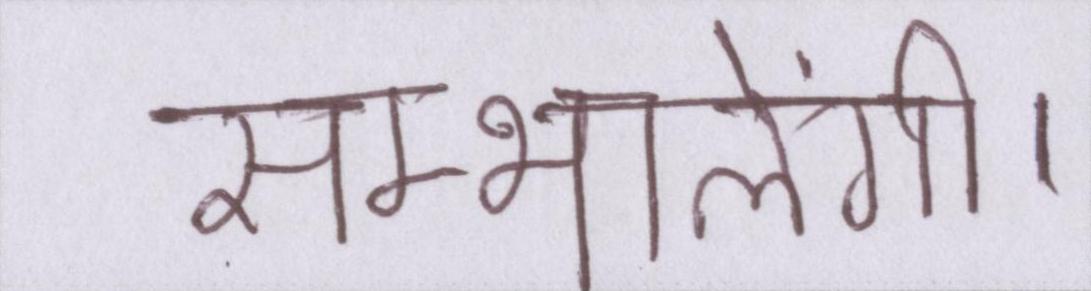 सम्भालेंगी।